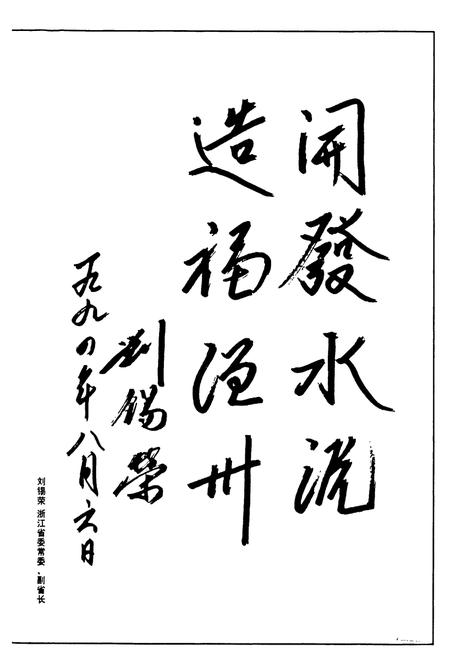 開發水流
造福温州
劉錫榮
一九九四年八月六日
刘锡荣 浙江省委常委、副省长